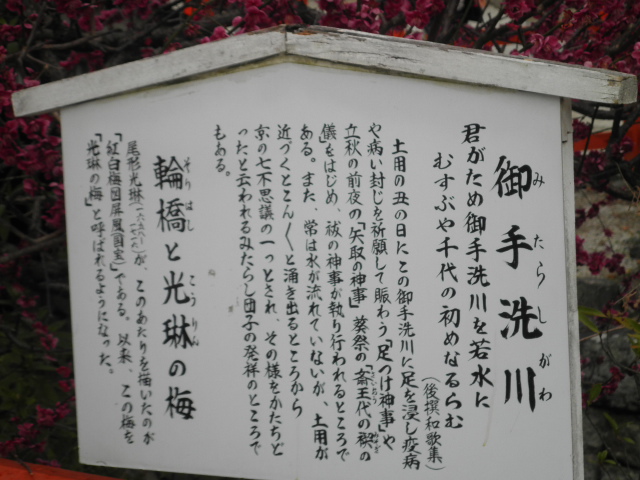 御手洗川
みたらしがわ
君がため御手洗川を若水に
むすぶや千代の初めなるらむ
(後撰和歌集)
土用の丑の日にこの御手洗川に足を浸し疫病
や病い封じを祈願して賑わう「足つけ神事」や
立秋の前夜の「矢取の神事」葵祭の「斎王代の禊の
儀」をはじめ、祓の神事が執り行われるところで
ある。また、常は水が流れていないが、土用が
近づくとこん〱と涌き出るところから
京の七不思議の一つとされ、その様をかたちど
ったと云われるみたらし団子の発祥のところで
もある。
輪橋と光琳の梅
そりはし
こうりん
尾形光琳が、このあたりを描いたのが
「紅白梅図屏風(国宝)」である。以来、この梅を
「光琳の梅」と呼ばれるようになった。